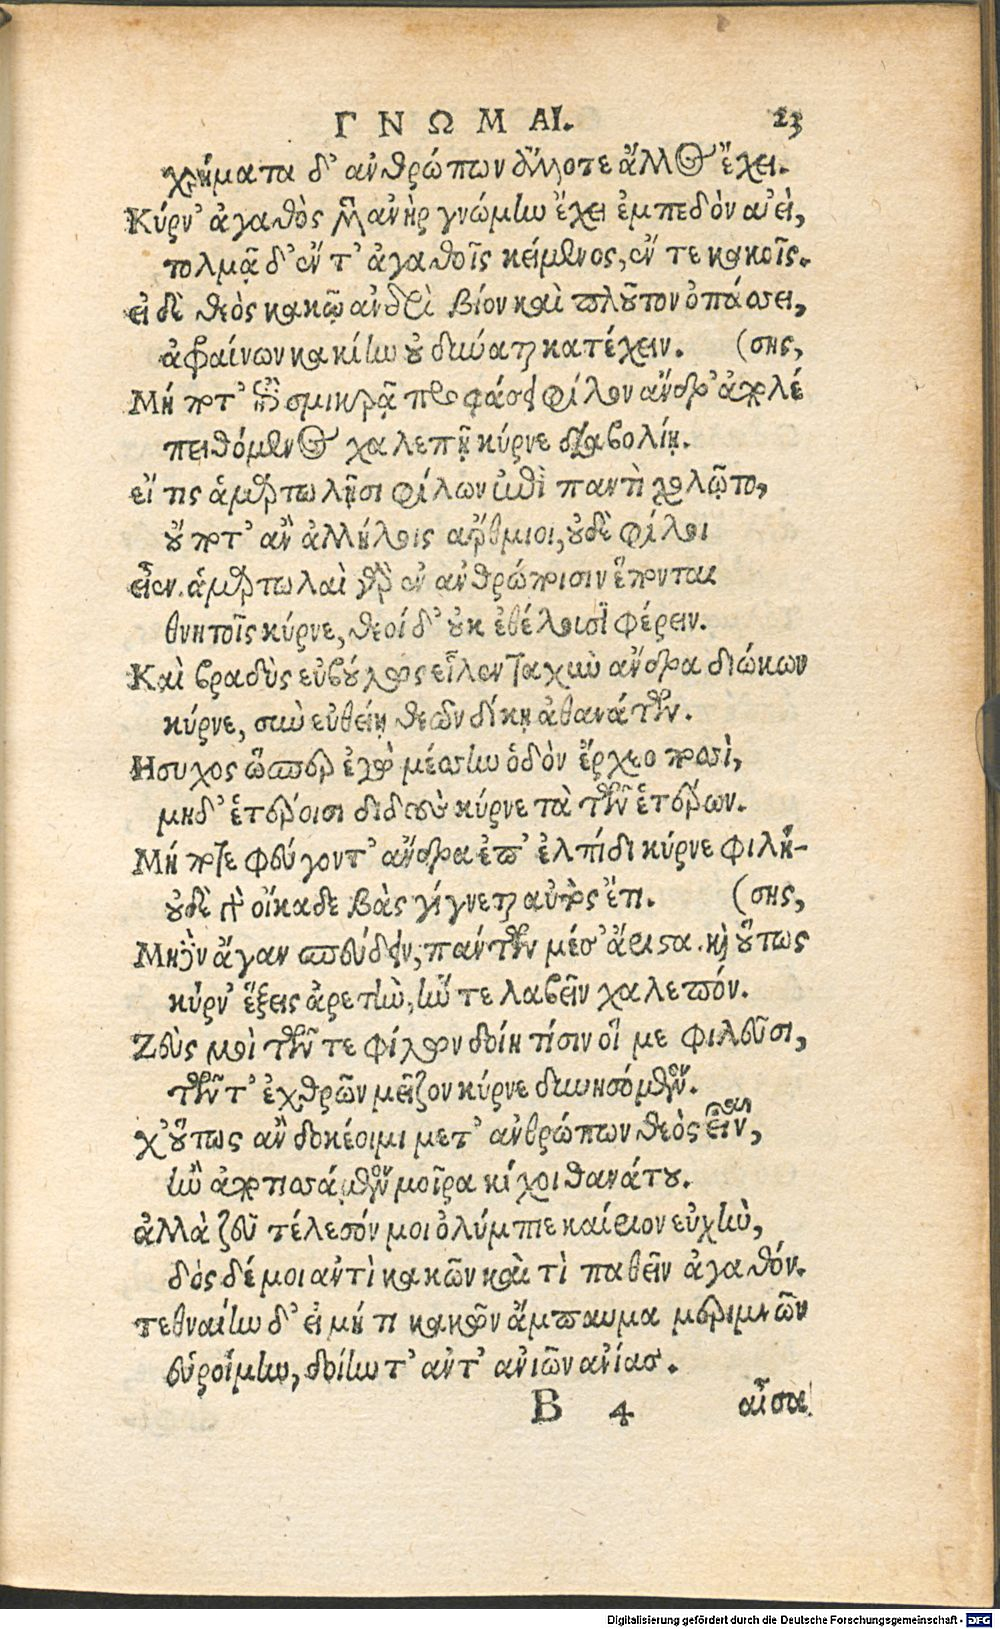 ΓΝΩΜΑΙ. 23
χρήματα δ' ἀνθρώπων ἄλλοτε ἄλλος ἔχει.
Κύρν' ἀγαθὸς μὲν ἀνὴρ γνώμην ἔχει ἐμπεδὸν αἰεὶ,
τολμᾷ δ' ἔν τ' ἀγαθοῖς κείμενος, ἔν τε κακοῖς.
εἰ δὲ θεὸς κακῷ ἀνδρὶ βίον καὶ πλοῦτον ὀπάσσει,
ἀφαίνων κακίην οὐ δύναται κατέχειν. (σης,
Μή ποτ' ἐπὶ σμικρᾷ προφάσει φίλον ἄνδρ' ἀπολέ
πειθόμενος χαλεπῇ κύρνε διαβολίῃ.
εἴ τις ἁμαρτωλῇσι φίλων ἐπὶ παντὶ χολῷτο,
οὔ ποτ' ἂν ἀλλήλοις ἄρθμιοι, οὐδὲ φίλοι
εἶεν. ἁμαρτωλαὶ γὰρ ἐν ἀνθρώποισιν ἕπονται
θνητοῖς κύρνε, θεοί δ' οὐκ ἐθέλουσι φέρειν.
Καὶ βραδὺς εὐβούλος εἷλεν ταχὺν ἄνδρα διώκων
κύρνε, σὺν εὐθείῃ θεῶν δίκῃ ἀθανάτων.
Ησυχος ὥσπερ ἐγὼ μέσσην ὁδὸν ἔρχεο ποσὶ,
μηδ' ἑτέροισι διδοὺς κύρνε τὰ τῶν ἑτέρων.
Μή ποτε φεύγοντ' ἄνδρα ἐπ' ἐλπίδι κύρνε φιλή-
οὐδὲ γὰρ οἴκαδε βὰς γίγνεται αὐτὸς ἔτι. (σης,
Μηδὲν ἄγαν σπεύδειν, πάντων μέσ' ἄριστα. καὶ οὕτως
κύρν' ἕξεις ἀρετὴν, ἥν τε λαβεῖν χαλεπόν.
Ζεύς μοι τῶν τε φίλων δοίη τίσιν οἵ με φιλεῦσι,
τῶν τ' ἐχθρῶν μεῖζον κύρνε δυνησόμενον.
χ' οὕτως ἂν δοκέοιμι μετ' ἀνθρώπων θεὸς εἶναι,
ἢν ἀποτισσάμενον μοῖρα κίχοι θανάτου.
ἀλλὰ ζεῦ τέλεσόν μοι ὀλύμπιε καίριον εὐχὴν,
δὸς δέ μοι ἀντὶ κακῶν καὶ τὶ παθεῖν ἀγαθόν.
τεθναίην δ' εἰ μή τι κακῶν ἄμπαυμα μεριμνῶν
εὑροίμην, δοίην τ' ἀντ' ἀνιῶν ἀνίας.
B 4 αἶσα
Digitalisierung gefördert durch die Deutsche Forschungsgemeinschaft - DFG